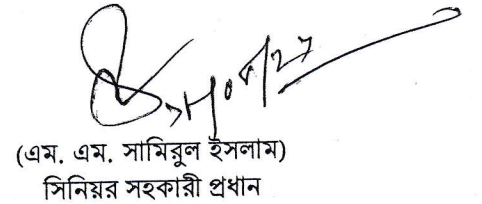 (এম. এম. সামিরুল ইসলাম)
সিনিয়র সহকারী প্রধান